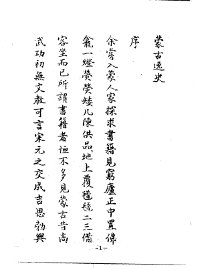 蒙古逸史
序
余嘗入蒙人家探求書籍見窮廬正中置佛
龕一燈熒熒矮几陳供品地上覆氊毯二三備
容坐而已所謂書籍者恒不多見蒙古昔尚
武功初無文教可言宋元之交成吉思勃興
-1-